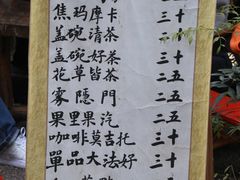 焦玛摩卡 三十
盖碗清茶 二十
盖碗好茶 三十
花草皆茶 二五
雾隐門 二五
果里果汽 二五
咖啡莫吉托 三十
單品大法好 三十